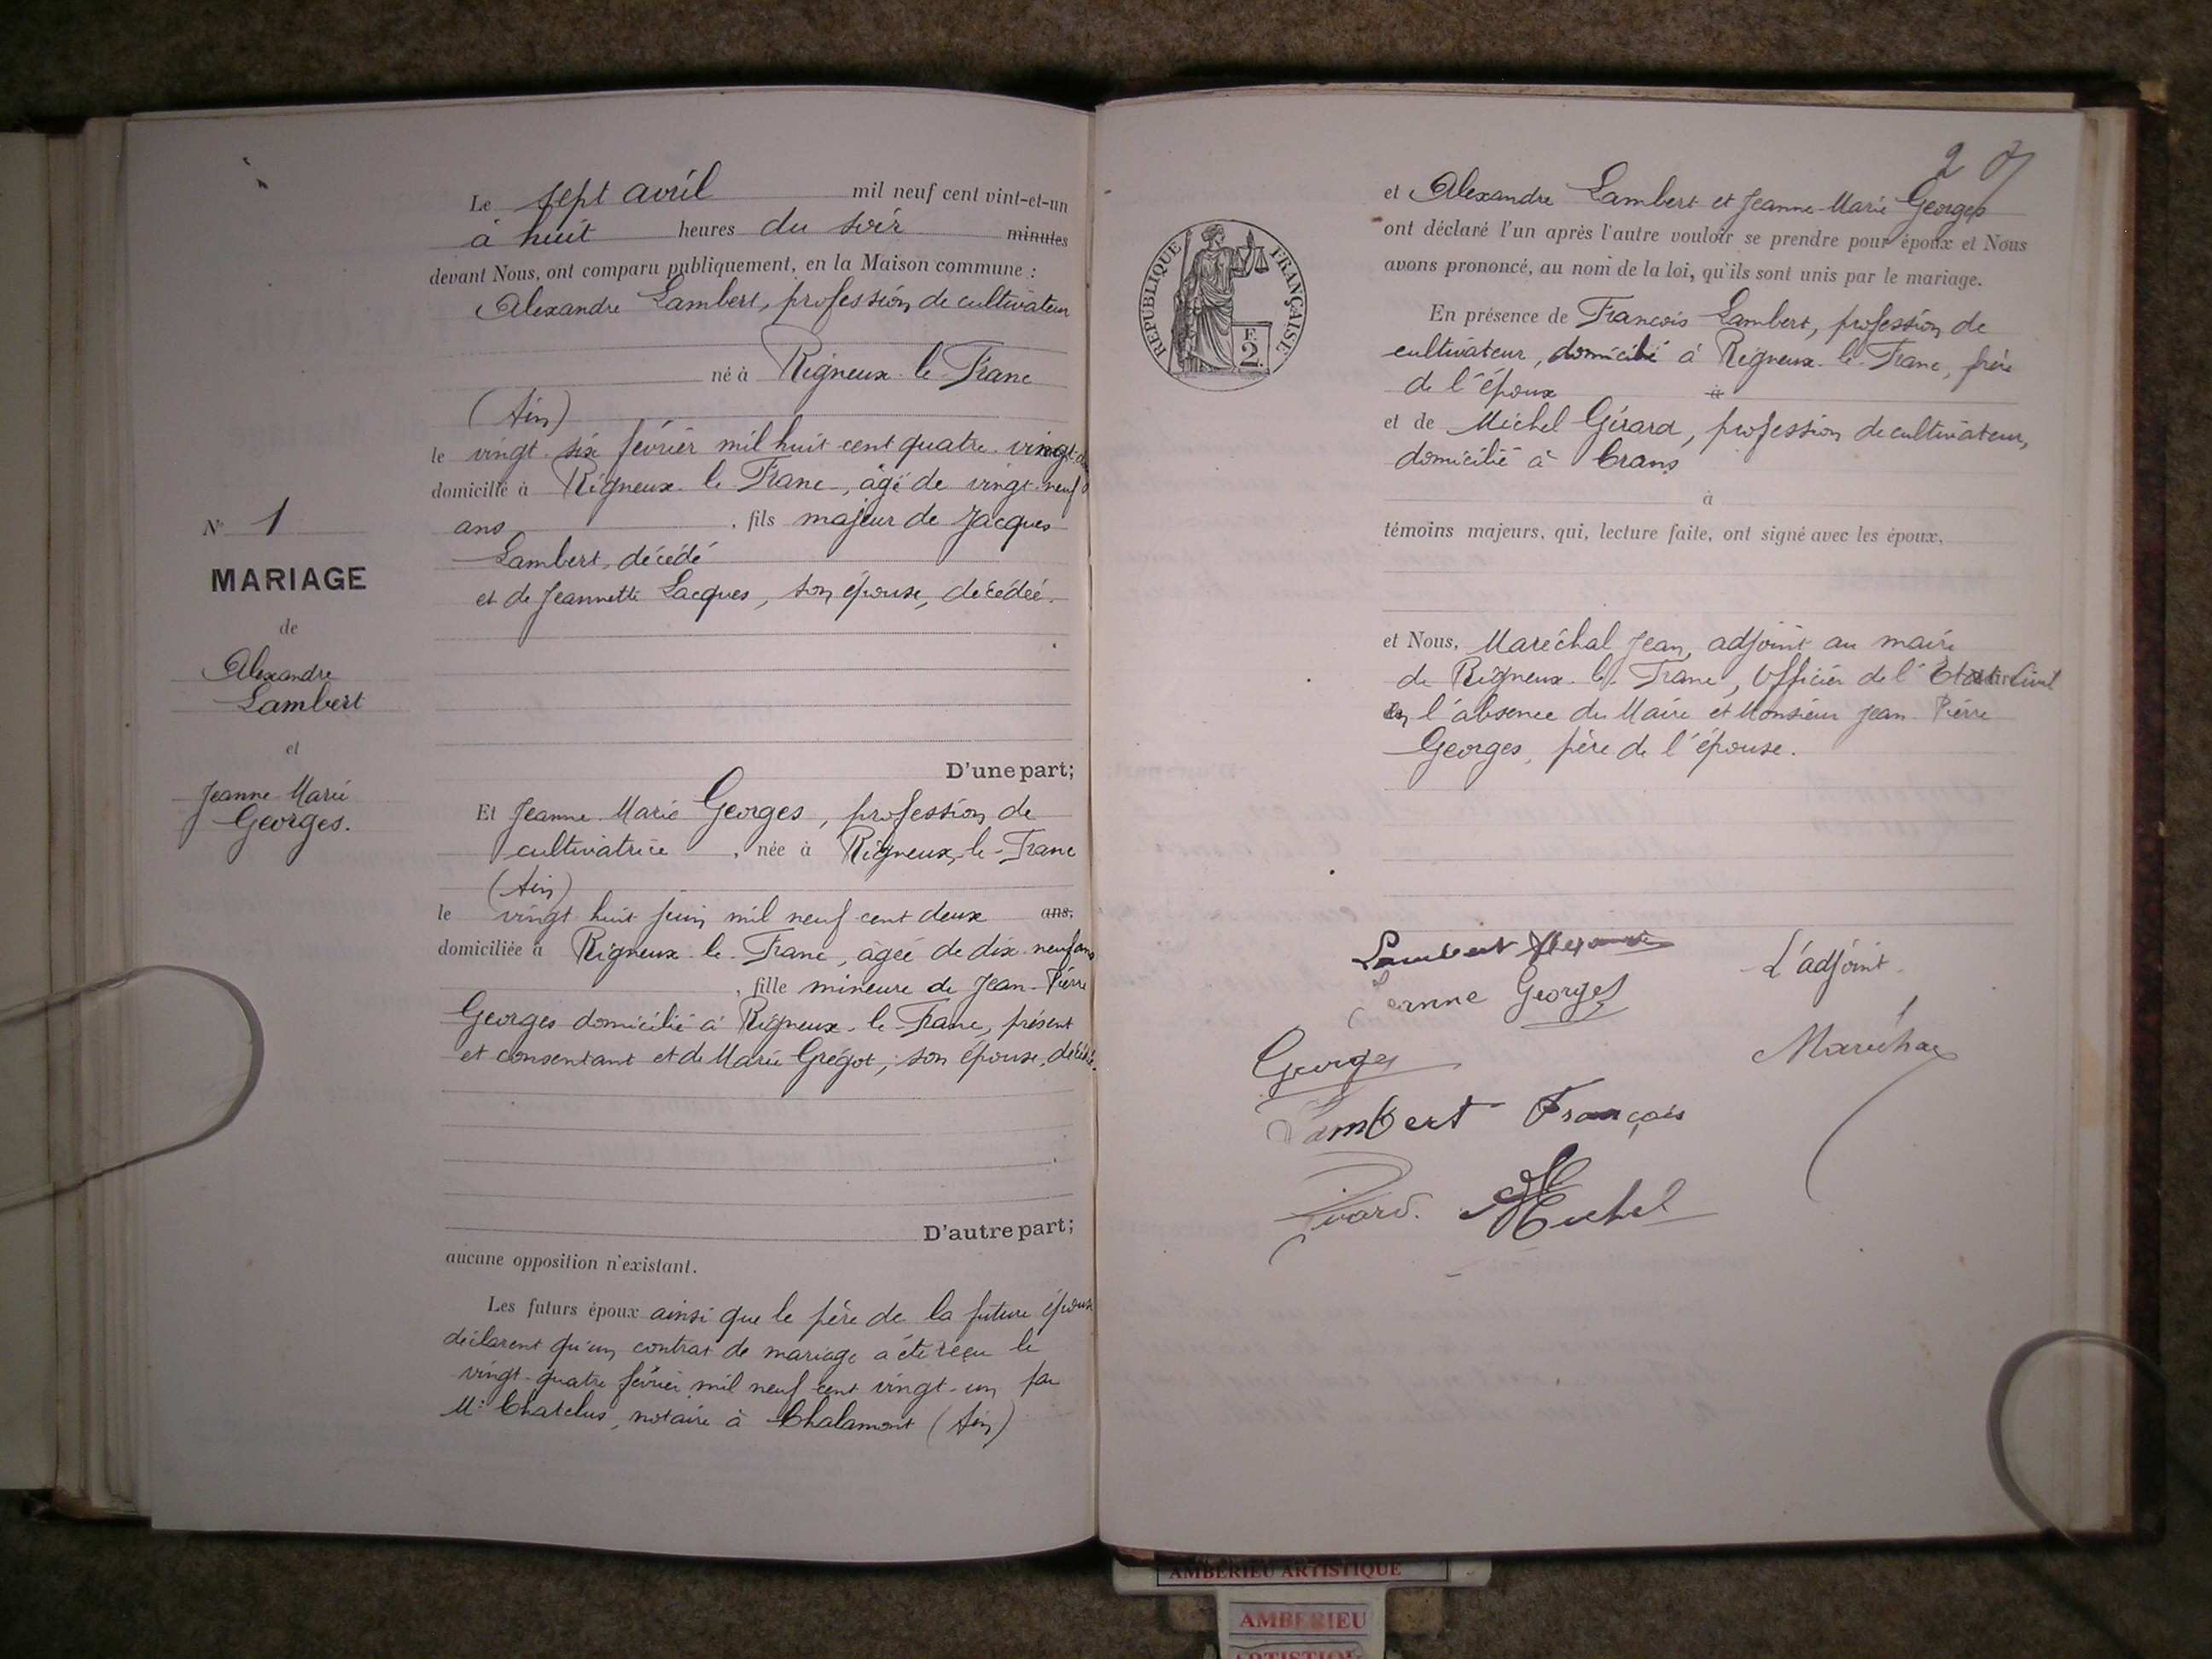 N° 1
MARIAGE
de
Alexandre
Lambert
et
Jeanne Marie
Georges.
Le sept avril mil neuf cent vint-et-un
à huit heures du soir minutes
devant Nous, ont comparu publiquement, en la Maison commune :
Alexandre Lambert, profession de cultivateur
né à Rigneux-le-Franc
(Ain)
le vingt-six février mil huit cent quatre-vingt-
domicilié à Rigneux-le-Franc, âgé de vingt-neuf
ans, fils majeur de Jacques
Lambert, décédé
et de Jeannette Lacques, son épouse, décédée.
D'une part;
Et Jeanne Marie Georges, profession de
cultivatrice, née à Rigneux-le-Franc
(Ain)
le vingt huit juin mil neuf cent deux ans,
domiciliée à Rigneux-le-Franc, âgée de dix-neuf ans
, fille mineure de Jean-Pierre
Georges domicilié à Rigneux-le-Franc, présent
et consentant et de Marie Grégot, son épouse, décédée.
D'autre part;
aucune opposition n'existant.
Les futurs époux ainsi que le père de la future épouse
déclarent qu'un contrat de mariage a été reçu le
vingt-quatre février mil neuf cent vingt-un par
Me Chatelus, notaire à Chalamont (Ain)
2
RÉPUBLIQUE FRANÇAISE
F. 2.
et Alexandre Lambert et Jeanne-Marie Georges
ont déclaré l'un après l'autre vouloir se prendre pour époux et Nous
avons prononcé, au nom de la loi, qu'ils sont unis par le mariage.
En présence de François Lambert, profession de
cultivateur, domicilié à Rigneux-le-Franc, frère
de l'époux à
et de Michel Girard, profession de cultivateur,
domicilié à Crans
à
témoins majeurs, qui, lecture faite, ont signé avec les époux.
et Nous, Maréchal Jean, adjoint au maire
de Rigneux-le-Franc, Officier de l'Etat Civil
en l'absence du Maire et Monsieur Jean-Pierre
Georges, père de l'épouse.
Lambert Alexandre
Jeanne Georges
L'adjoint
Georges
Maréchal
Lambert François
Girard. Michel
AMBERIEU ARTISTIQUE
AMBERIEU
ARTISTIQUE